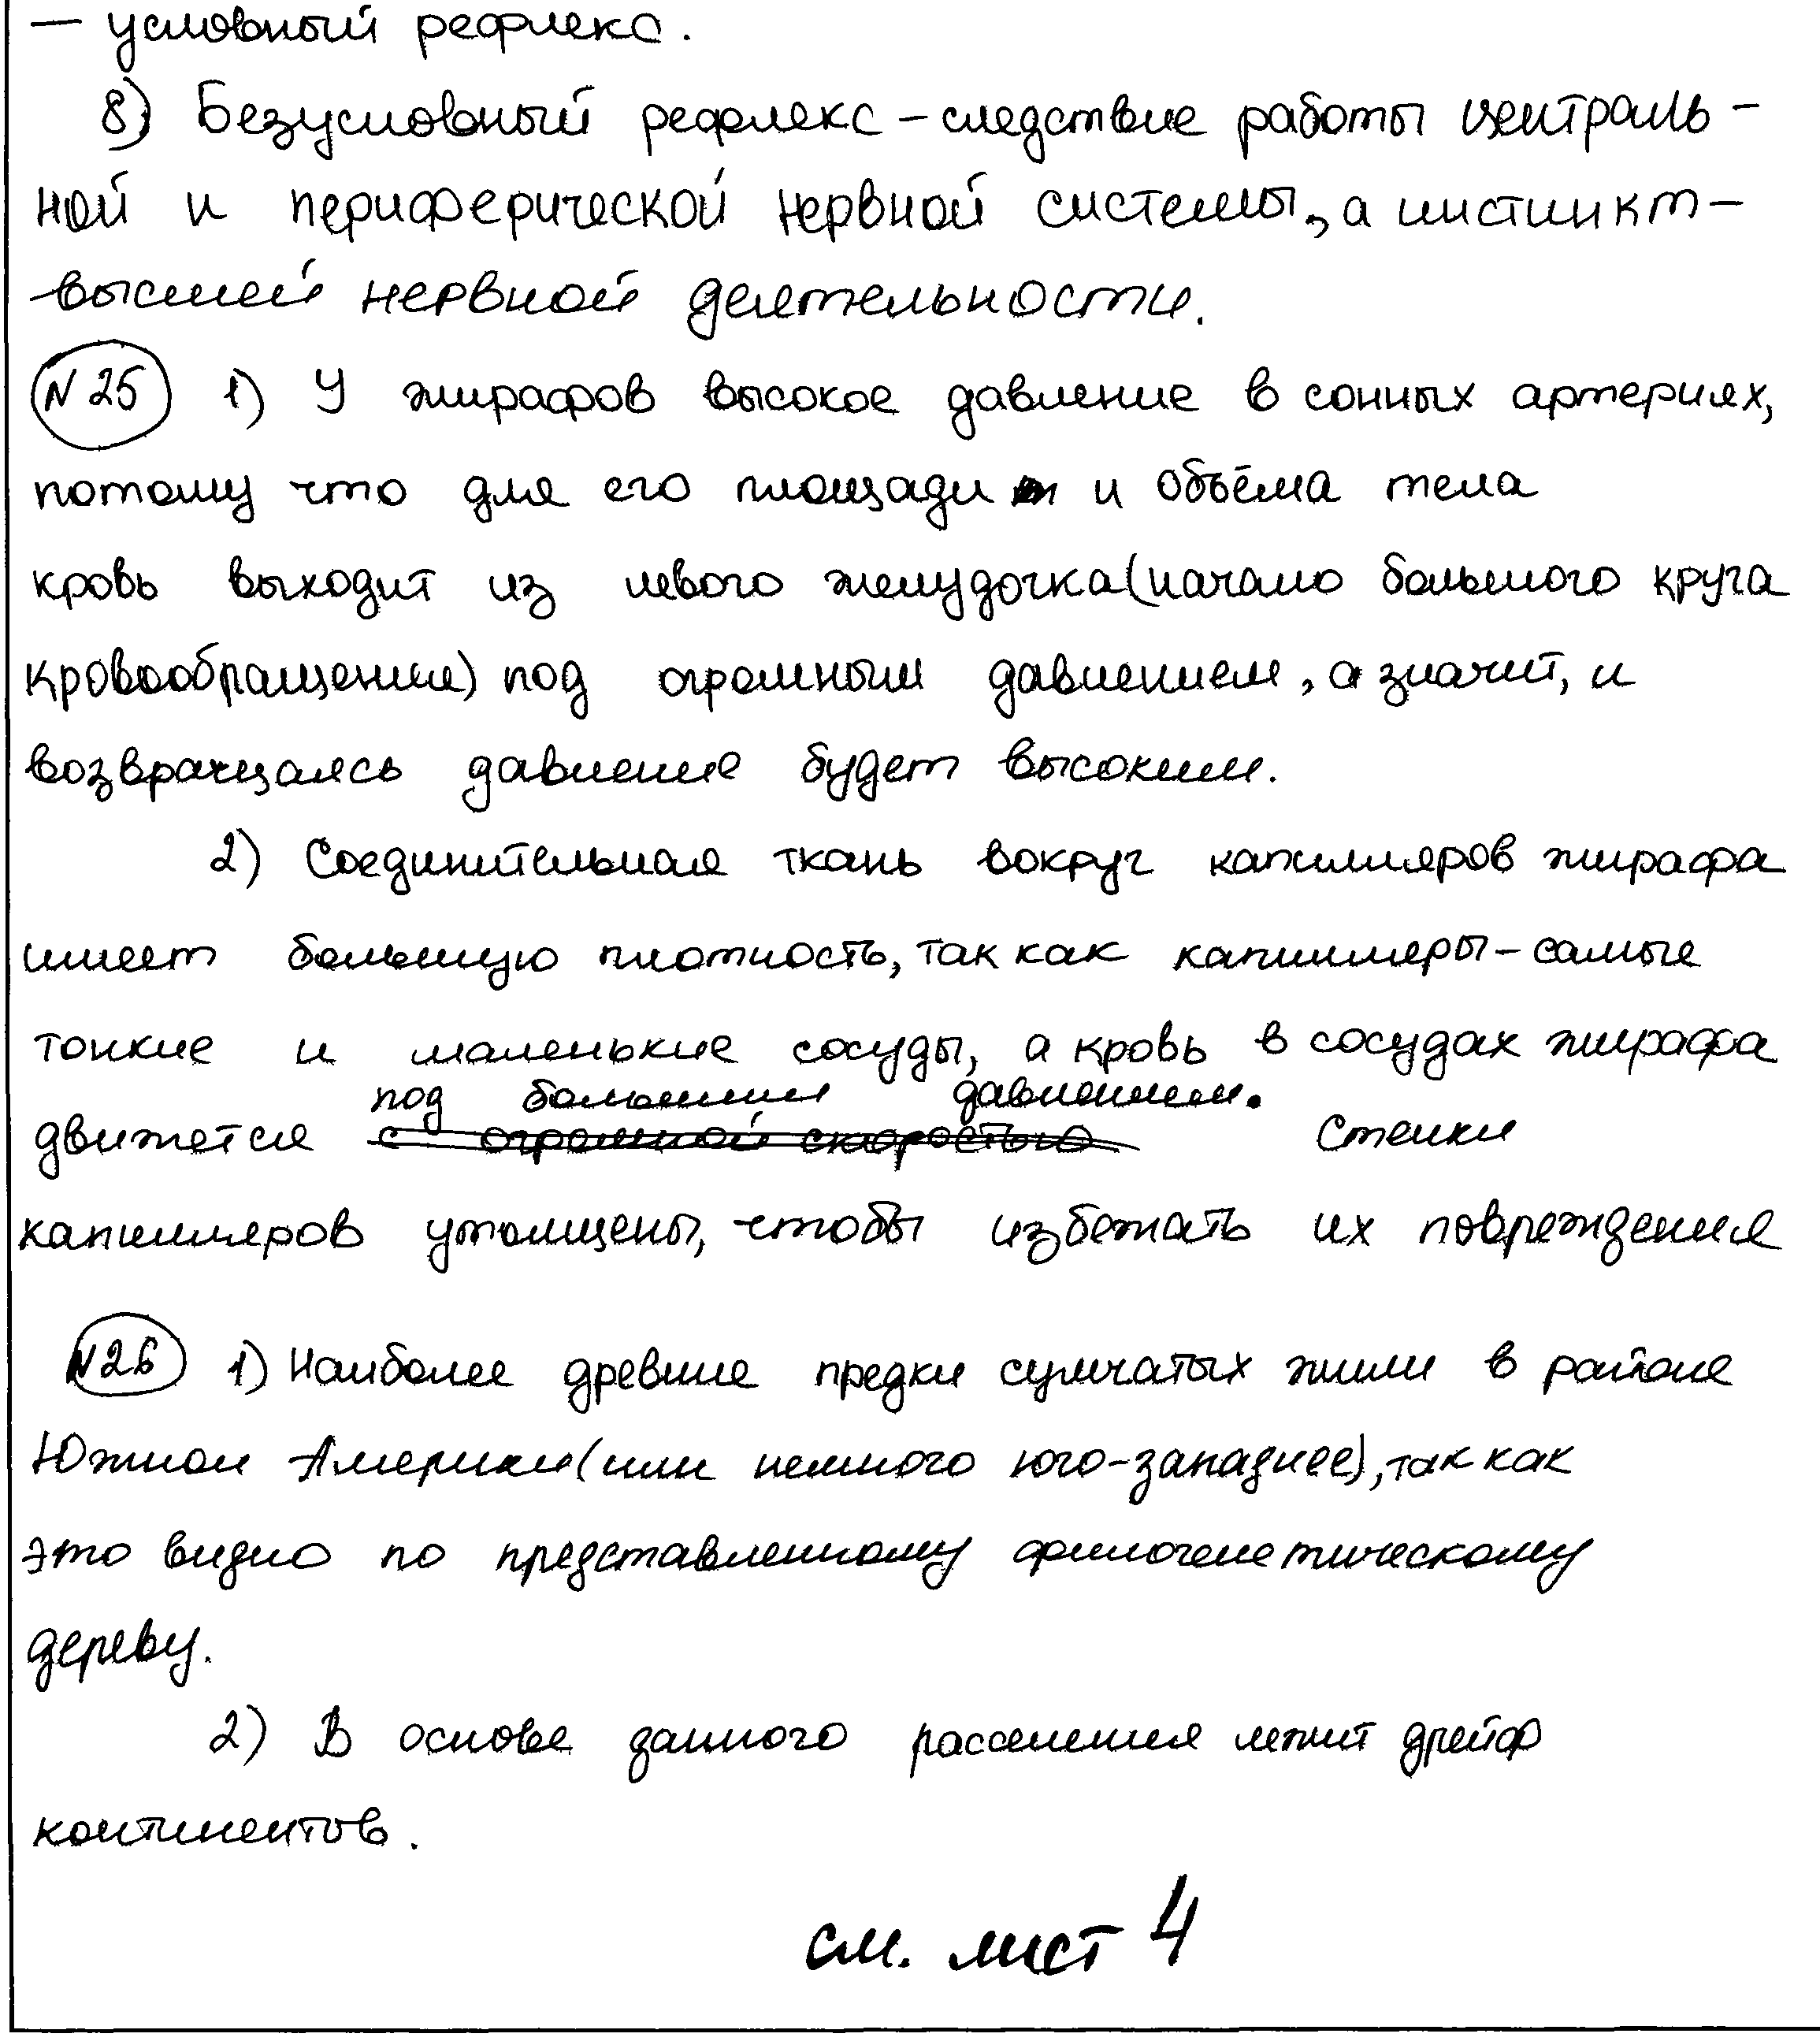 — условный рефлекс.
8) Безусловный рефлекс – следствие работы централь-
ной и периферической нервной системы, а инстинкт –
высшей нервной деятельности.
N25 1) У жирафов высокое давление в сонных артериях,
потому что для его площади и объёма тела
кровь выходит из левого желудочка (начало большого круга
кровообращения) под огромным давлением, а значит, и
возвращаясь давление будет высоким.
2) Соединительная ткань вокруг капилляров жирафа
имеет большую плотность, так как капилляры – самые
тонкие и маленькие сосуды, а кровь в сосудах жирафа
под большим давлением.
движется с огромной скоростью Стенки
капилляров утолщены, чтобы избежать их повреждения
N26 1) Наиболее древние предки сумчатых жили в районе
Южной Америки (или немного юго-западнее), так как
это видно по представленному филогенетическому
дереву.
2) В основе данного расселения лежит дрейф
континентов.
см. лист 4